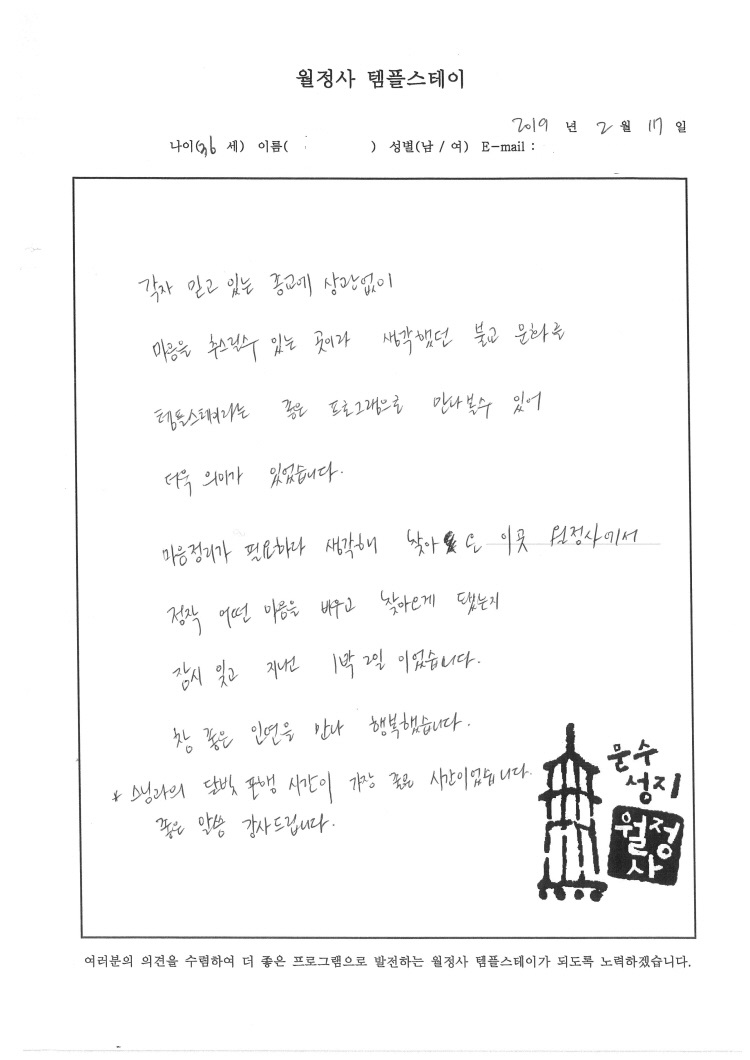 월정사 템플스테이
2019 년 2 월 17 일
나이(36 세) 이름( ) 성별(남 / 여) E-mail :
각자 믿고 있는 종교에 상관없이
마음을 추스릴수 있는 곳이라 생각했던 불교 문화를
템플스테이라는 좋은 프로그램으로 만나볼수 있어
더욱 의미가 있었습니다.
마음정리가 필요하다 생각해 찾아 온 이곳 월정사에서
정작 어떤 마음을 비우고 찾아오게 됐는지
잠시 잊고 지내던 1박 2일 이었습니다.
참 좋은 인연을 만나 행복했습니다.
* 스님과의 달빛 포행 시간이 가장 좋은 시간이었습니다.
좋은 말씀 감사드립니다.
문수
성지
월정
사
여러분의 의견을 수렴하여 더 좋은 프로그램으로 발전하는 월정사 템플스테이가 되도록 노력하겠습니다.